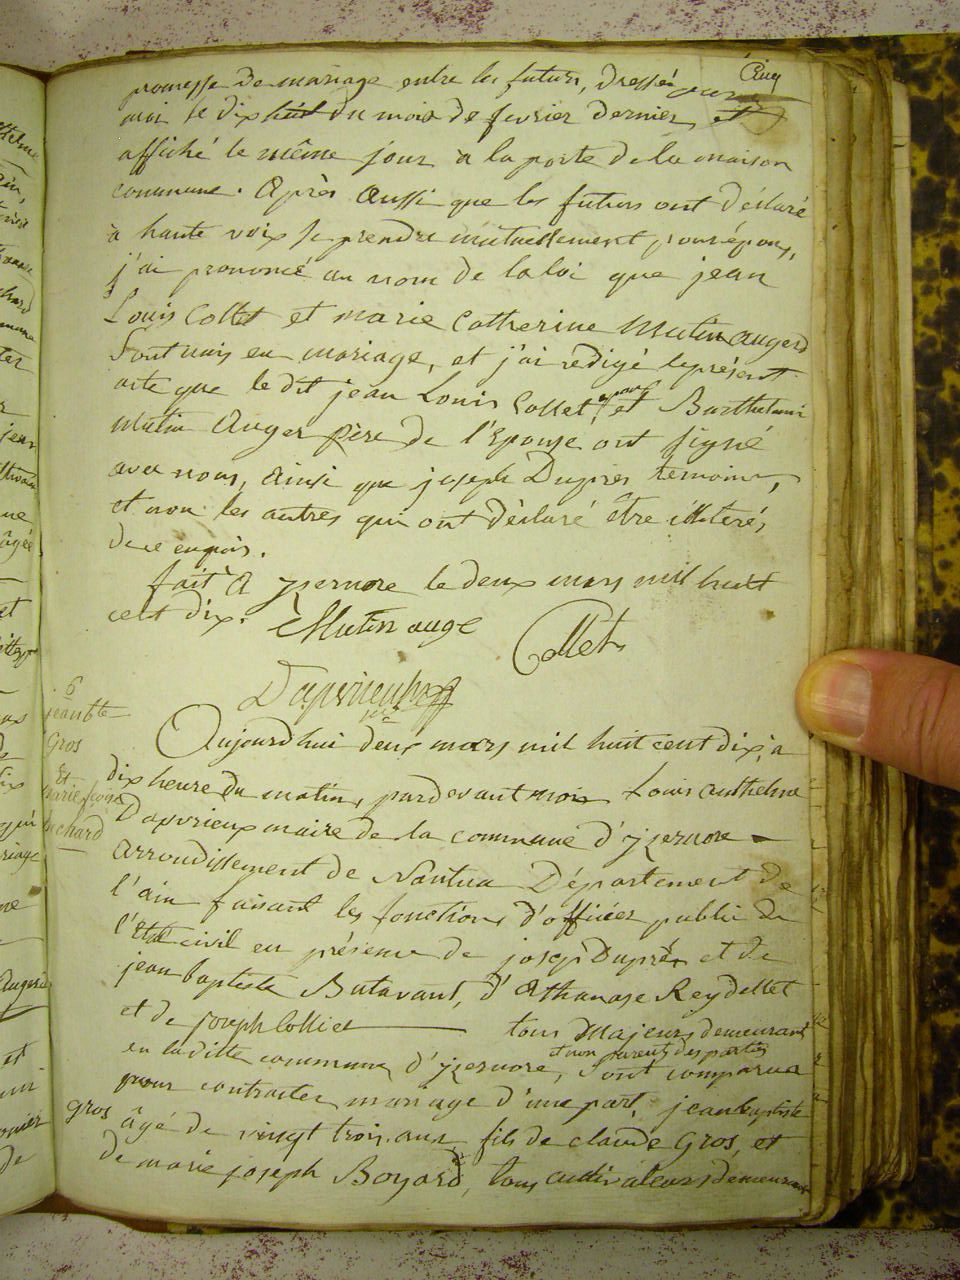 Cinq
promesse de mariage entre les futurs, dressée par
moi le dix huit du mois de fevrier dernier, et
affiché le même jour à la porte de la maison
commune. Après aussi que les futurs ont déclaré
à haute voix se prendre mutuellement pour époux,
j'ai prononcé au nom de la loi que jean
Louis Collet et marie Catherine Mutin auger
Sont unis en mariage, et j'ai rédigé le présent
acte que le dit jean Louis Collet époux et Barthelemi
Mutin Auger père de l'Epouse ont signé
avec nous, ainsi que joseph Duprès temoins,
et non les autres qui ont déclaré être illiterés
de ce enquis.
fait à yzernore le deux mars mil huit
cent dix. Mutin auge Collet
Dapvrieux
6
jean bte
Gros
Et
marie
Aujourdhui deux mars mil huit cent dix, à
dix heure du matin, pardevant moi Louis anthelme
Dapvrieux maire de la commune d'yzernore
arrondissement de Nantua Département de
l'ain faisant les fonctions d'officier public de
l'Etat civil en présence de josep Duprès et de
jean baptiste Butavant, d'Athanase Reydellet
et de joseph Colliet tous Majeurs demeurant
en laditte commune d'yzernore, et non parents des parties Sont comparus
pour contracter mariage d'une part, jean baptiste
Gros âgé de vingt trois ans fils de claude Gros, et
de marie joseph Boyard, tous cultivateurs demeurant